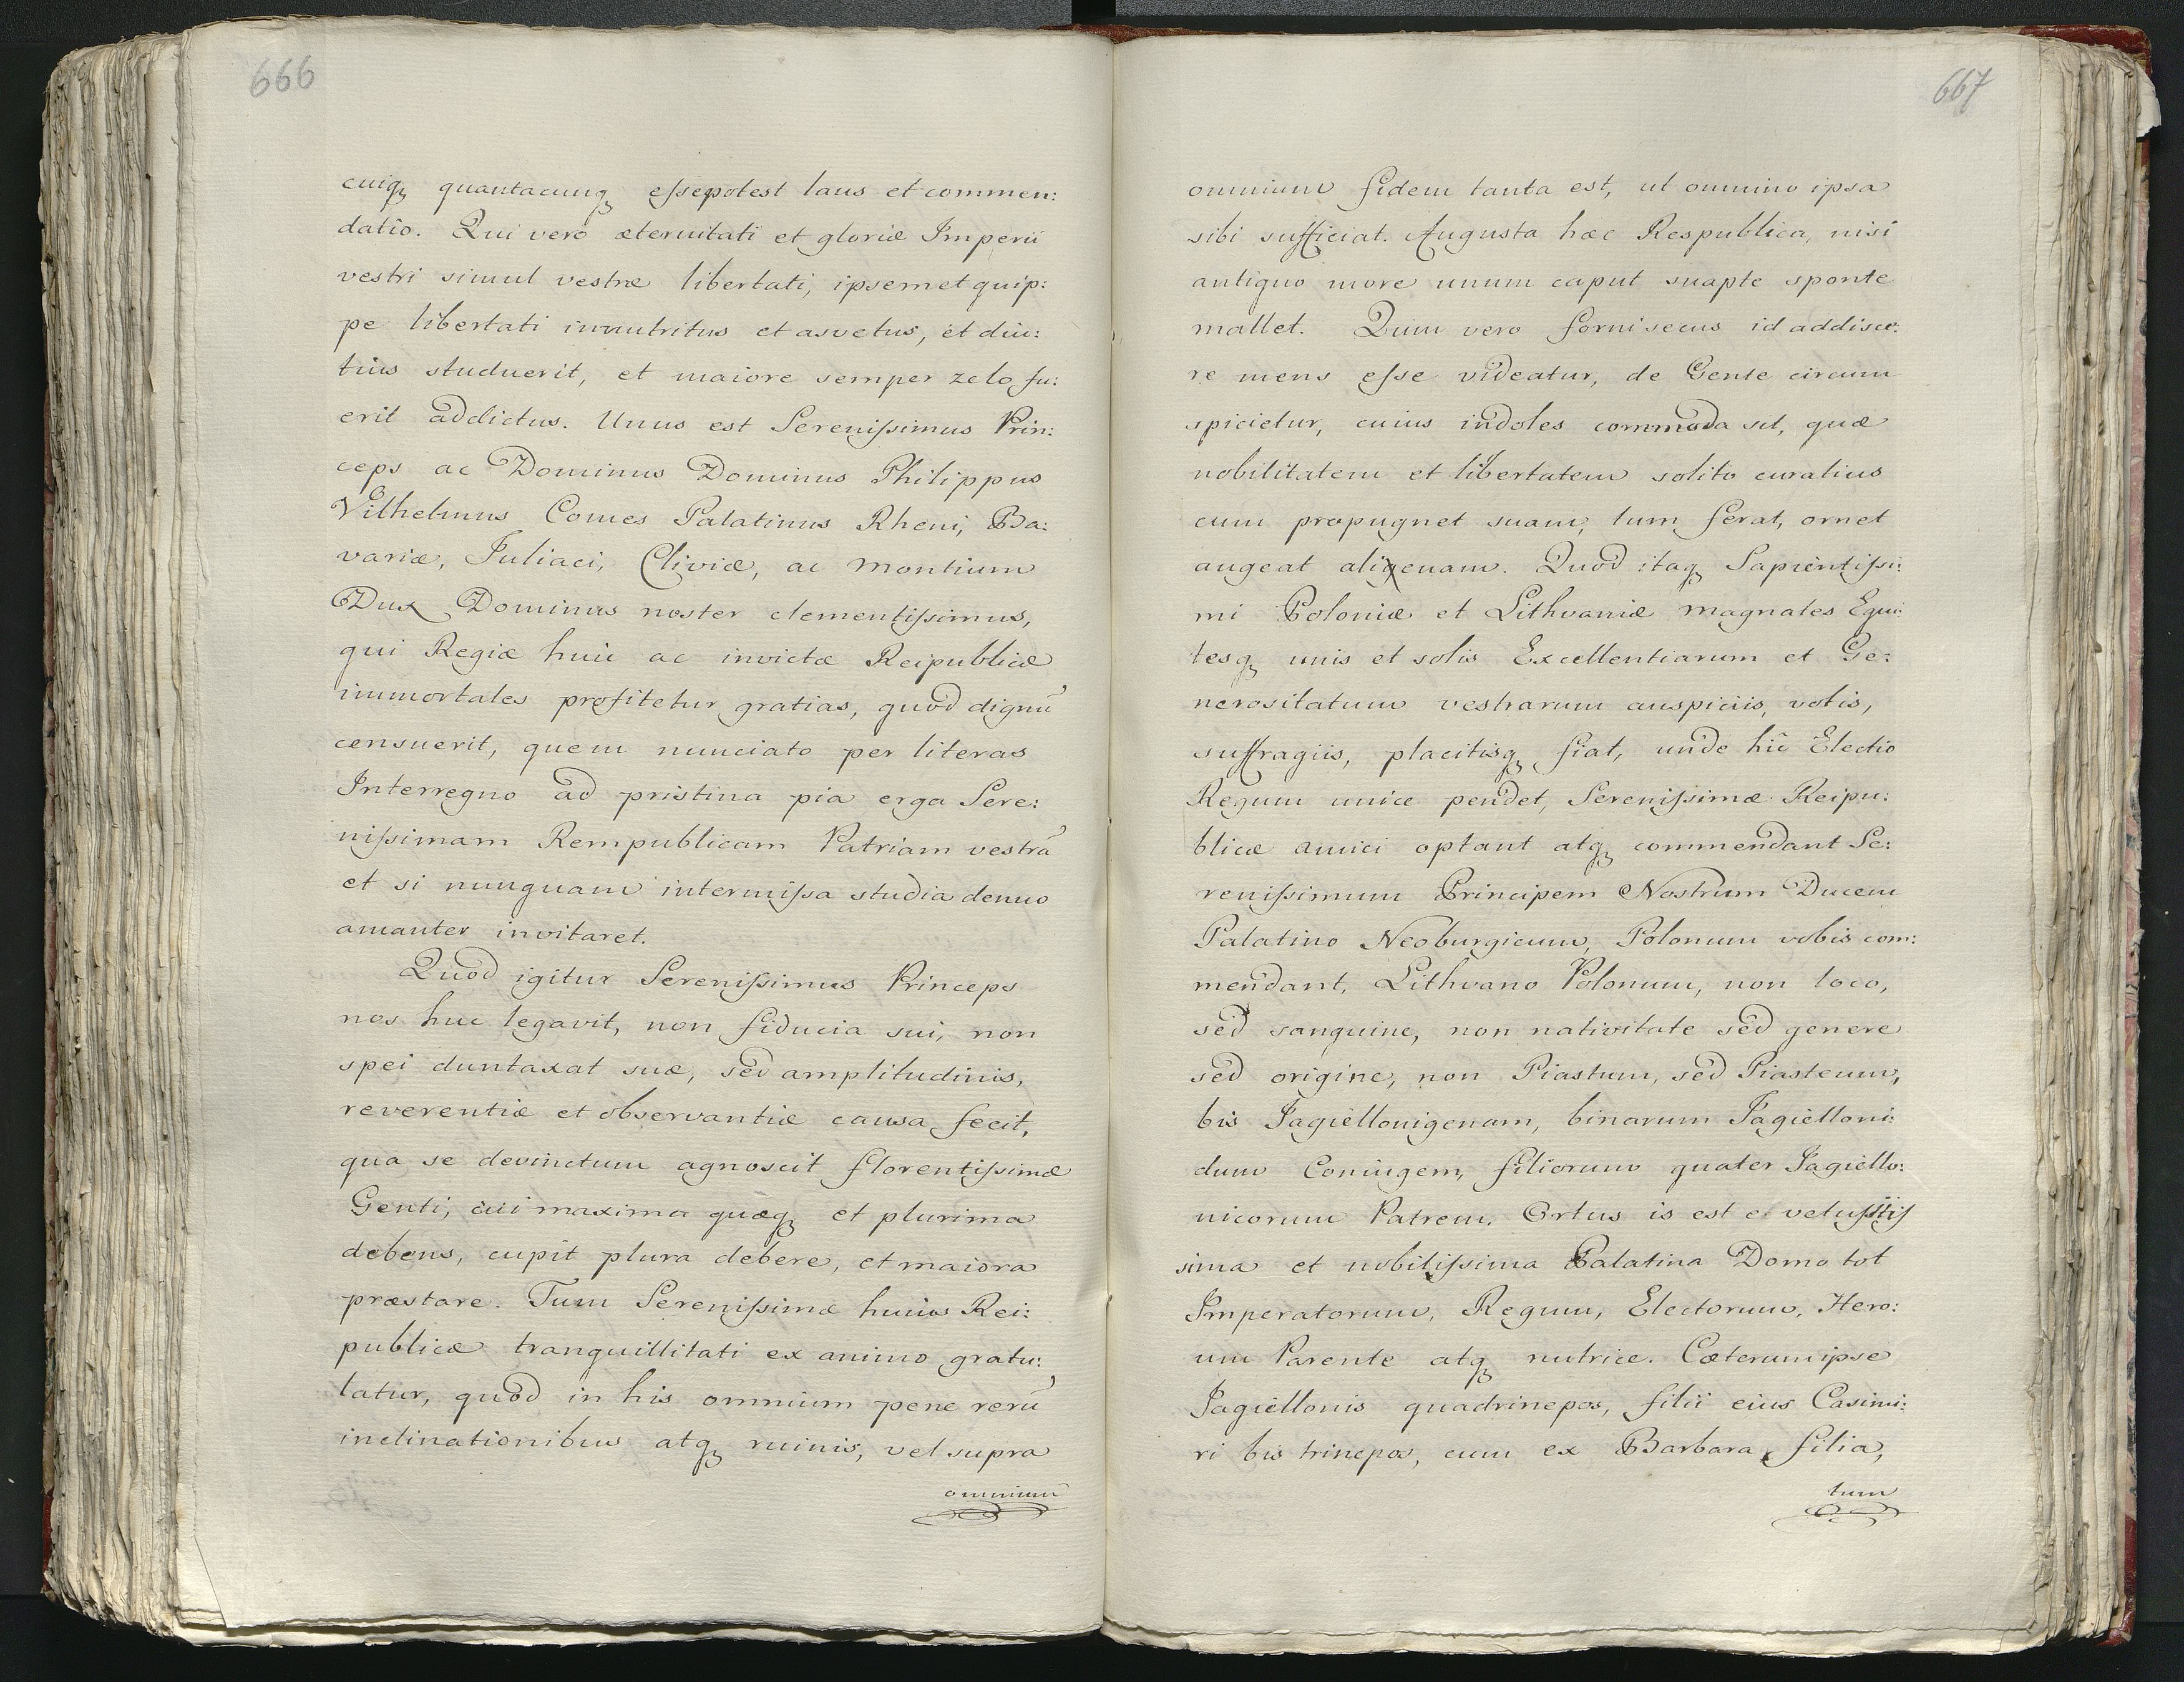 666
cuiq₃ quantacunq₃ eſsepotest laus et commen:
datio. Qui vero æternitati et gloriæ Imperii
vestri simul vestræ libertati, ipsemet quip:
pe libertati innutritus et asvetus, et diu:
tius studuerit, et maiore semper zelo fu:
erit addictus. Unus est Sereniſsimus Prin:
ceps ac Dominus Dominus Philippus
Vilhelmus Comes Palatinus Rheni, Ba:
variæ, Juliaci, Cliviæ, ac Montium
Dux Dominus noster clementiſsimus,
qui Regiæ huic ac invictæ Reipublicæ
immortales profitetur gratias, quod dignũ
censuerit, quem nunciato per literas
Interregno ad pristina pia erga Sere:
niſsimam Rempublicam Patriam vestrã
et si nunquam intermiſsa studia denuo
amanter invitaret.
Quod igitur Sereniſsimus Princeps
nos huc legavit, non fiducia sui, non
spei duntaxat suæ, sed amplitudinis,
reverentiæ et observantiæ causa fecit,
qua se devinctum agnoscit florentiſsimæ
Genti, cui maxima quæq₃ et plurima
debens, cupit plura debere, et maiora
præstare. Tum Sereniſsimæ huius Rei:
publicæ tranquillitati ex animo gratu:
latur, quod in his omnium pene rerũ
inclinationibus atq₃ ruinis, vel supra
omnium
667
omnium fidem tanta est, ut omnino ipsa
sibi sufficiat. Augusta hæc Respublica, nisi
antiquo more unum caput suapte sponte
mallet. Quum vero fornisecus id addisce:
re mens eſse videatur, de Gente circum
spicietur, cuius indoles commoda sit, quæ
nobilitatem et libertatem solito curatius
cum propugnet suam, tum ferat, ornet
augeat aligenam. Quod itaq₃ Sapientiſsi:
mi Poloniæ et Lithvaniæ magnates Equi:
tesq₃ unis et solis Excellentiarum et Ge:
nerositatum vestrarum auspiciis, votis,
suffragiis, placitisq₃ fiat, unde hic Electio
Regum unice pendet, Sereniſsimæ Reipu:
blicæ amici optant atq₃ commendant Se:
reniſsimum Principem Nostrum Ducem
Palatino Neoburgicum, Polonum vobis com:
mendant, Lithvano Polonum, non loco,
sed sanguine, non nativitate sed genere
sed origine, non Piastum, sed Piasteum,
bis Jagiellonigenam, binarum Jagielloni:
dum Coniugem, filiorum quater Jagiello:
nicorum Patrem. Ortus is est e vetuſtiſ
sima et nobiliſsima Palatina Domo tot
Imperatorum, Regum, Electorum, Hero:
um Parente atq₃ nutrice. Cæterum ipse
Jagiellonis quadrinepos, filii eius Casimi:
ri bis trinepos, cum ex Barbara filia,
tum